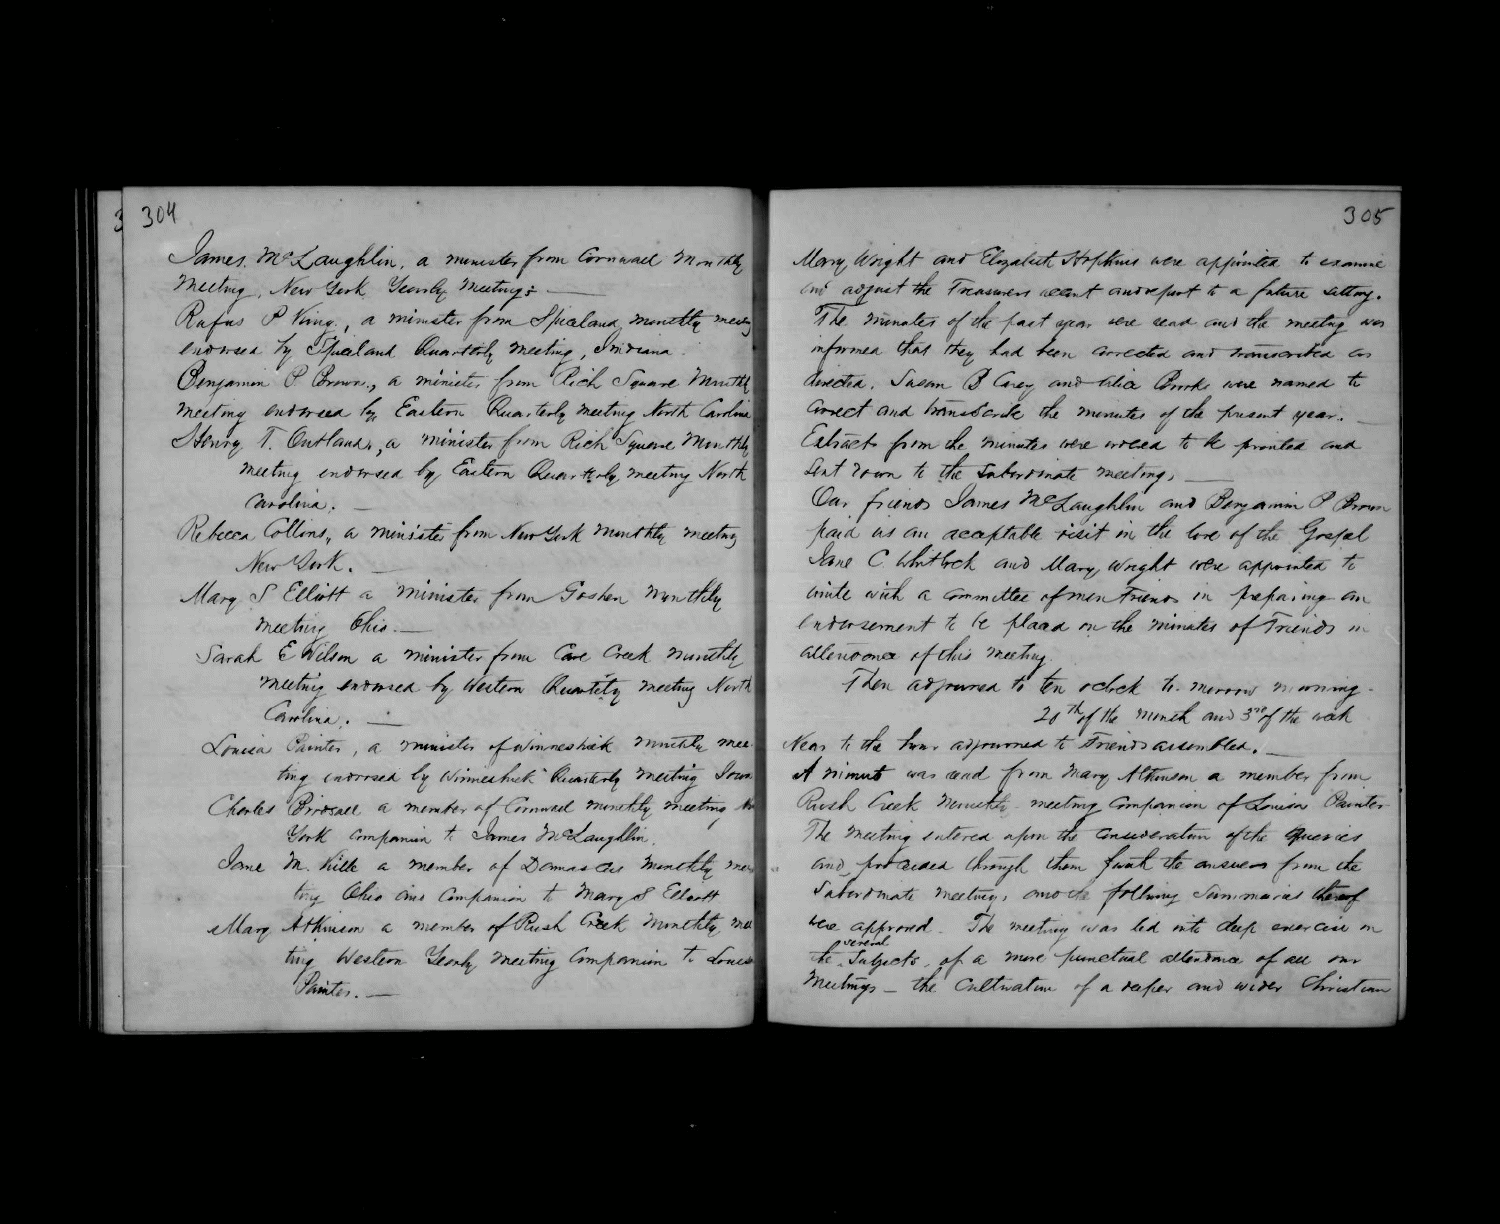 304
James McLaughlin, a minister from Cornwall Monthly
Meeting, New York Yearly Meeting;
Rufus P King, a minister from Spiceland monthly meeting
endorsed by Spiceland Quarterly Meeting, Indiana.
Benjamin P Brown, a minister from Rich Square Monthly
meeting endorsed by Eastern Quarterly meeting North Carolina
Henry T. Outland, a minister from Rich Square Monthly
meeting endorsed by Eastern Quarterly meeting North
Carolina. —
Rebecca Collins, a minister from New York Monthly meeting
New York. —
Mary S Elliott a minister from Goshen monthly
meeting Ohio. —
Sarah E Wilson a minister from Cane Creek monthly
meeting endorsed by Western Quarterly meeting North
Carolina. —
Louisa Painter, a minister of Winneshiek monthly mee-
ting endorsed by Winneshiek Quarterly meeting Iowa
Charles Birdsall a member of Cornwall monthly meeting
York companion to James McLaughlin.
Jane M. a member of Damascus monthly mee
ting Ohio and companion to Mary S Elliott
Mary Atkinson a member of Rush Creek Monthly mee
ting Western Yearly Meeting Companion to Louisa
Painter. —
305
Mary Wright and Elizabeth Hopkins were appointed to examine
and adjust the Treasurers account and report to a future sitting.
The minutes of the past year were read and the meeting was
informed that they had been corrected and transcribed as
directed. Susan B Carey and Alice Brooks were named to
correct and transcribe the minutes of the present year. —
Extracts from the minutes were ordered to be printed and
sent down to the subordinate meetings. —
Our friends James McLaughlin and Benjamin P Brown
paid us an acceptable visit in the love of the Gospel
Jane C. Whitlock and Mary Wright were appointed to
unite with a committee of men Friends in preparing an
endorsement to be placed on the minutes of Friends in
attendance of this meeting.
Then adjourned to ten oclock to-morrow morning.
20th of the month and 3rd of the week
Near to the hour adjourned to Friends assembled. —
A minute was read from Mary Atkinson a member from
Rush Creek Monthly meeting Companion of Louisa Painter
The Meeting entered upon the consideration of the Queries
and proceeded through them with the answers from the
Subordinate meetings and the following Summaries thereof
were approved. The meeting was led into deep exercise on
the several Subjects, of a more punctual attendance of all our
Meetings — the Cultivation of a deeper and wider Christian